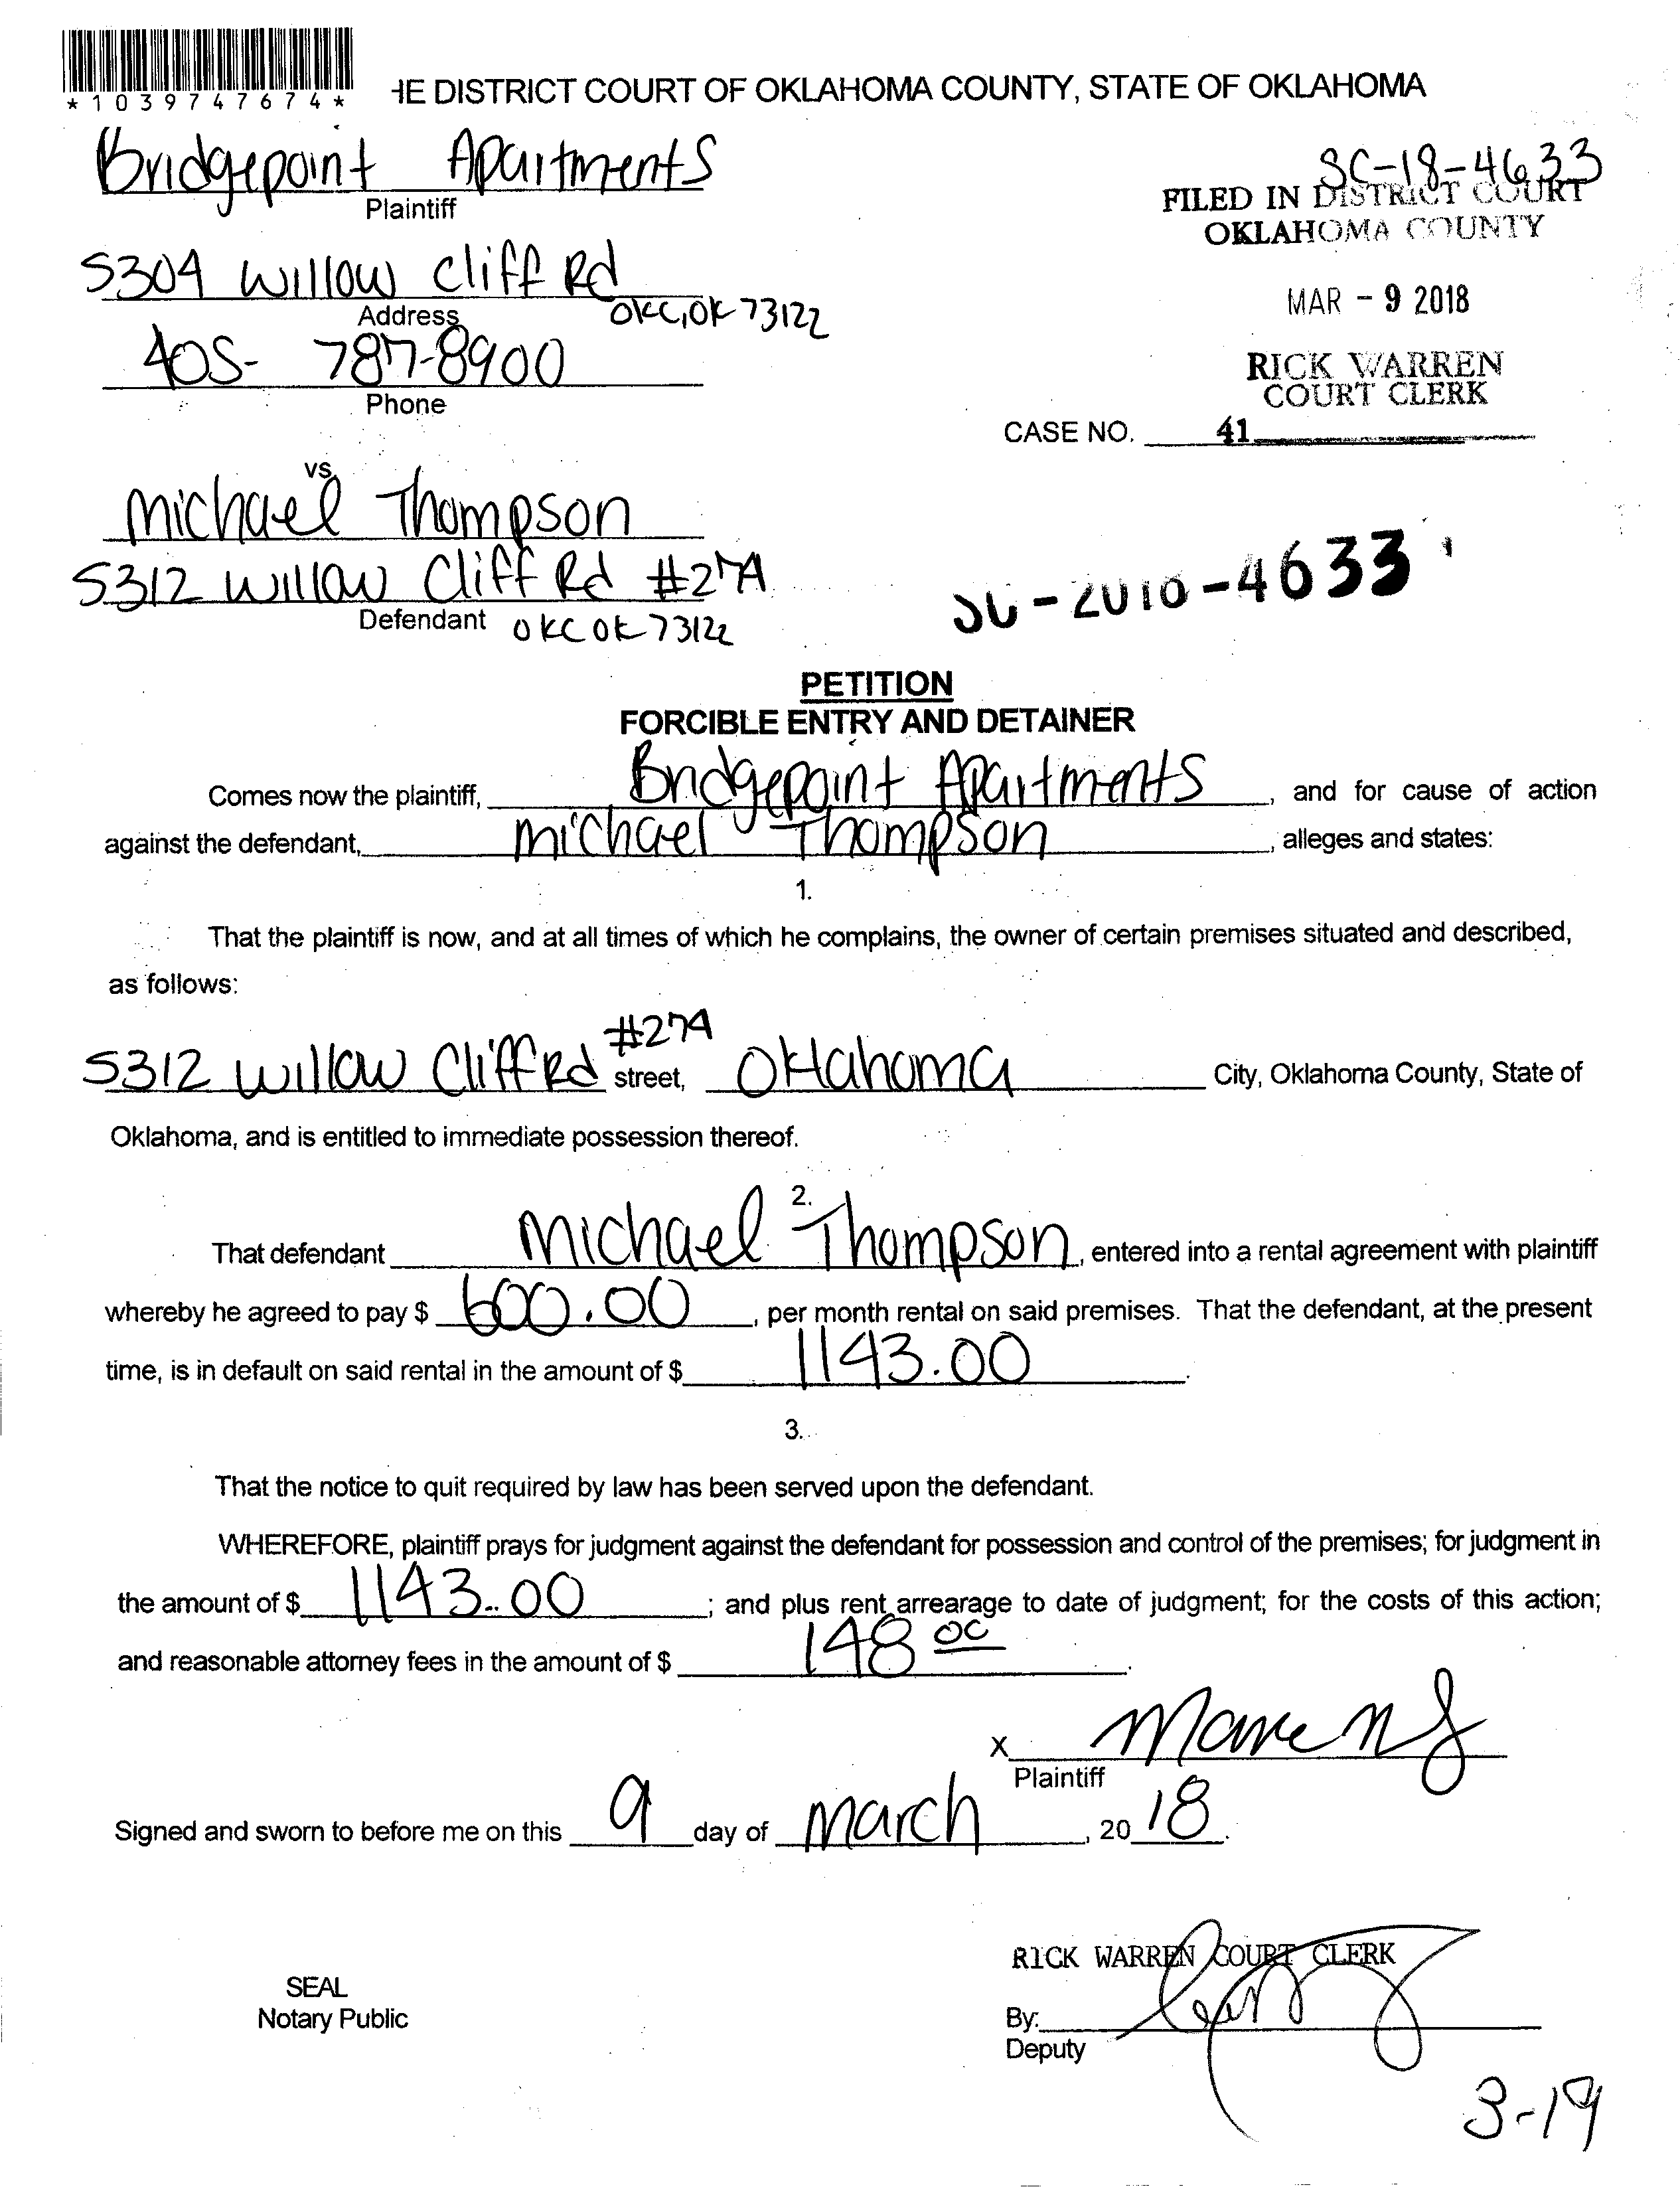 *1039747674*
HE DISTRICT COURT OF OKLAHOMA COUNTY, STATE OF OKLAHOMA
Bridgepoint Apartments
Plaintiff
SC-18-4633
FILED IN DISTRICT COURT
OKLAHOMA COUNTY
5304 Willow Cliff Rd
Address
OKC, OK 73122
MAR - 9 2018
405- 787-8900
Phone
RICK WARREN
COURT CLERK
CASE NO. 41
vs.
Michael Thompson
5312 Willow Cliff Rd #27A
Defendant OKC OK 73122
-4633
PETITION
FORCIBLE ENTRY AND DETAINER
Comes now the plaintiff, Bridgepoint Apartments, and for cause of action
against the defendant, Michael Thompson, alleges and states:
1.
That the plaintiff is now, and at all times of which he complains, the owner of certain premises situated and described,
as follows:
5312 Willow Cliff Rd #27A street, Oklahoma City, Oklahoma County, State of
Oklahoma, and is entitled to immediate possession thereof.
2.
That defendant Michael Thompson, entered into a rental agreement with plaintiff
whereby he agreed to pay $ 600.00, per month rental on said premises. That the defendant, at the present
time, is in default on said rental in the amount of $ 1143.00.
3.
That the notice to quit required by law has been served upon the defendant.
WHEREFORE, plaintiff prays for judgment against the defendant for possession and control of the premises; for judgment in
the amount of $ 1143.00; and plus rent arrearage to date of judgment; for the costs of this action;
and reasonable attorney fees in the amount of $ 148 00.
X
Plaintiff
Signed and sworn to before me on this 9 day of March, 2018.
RICK WARREN COURT CLERK
SEAL
Notary Public
By:
Deputy
3-19